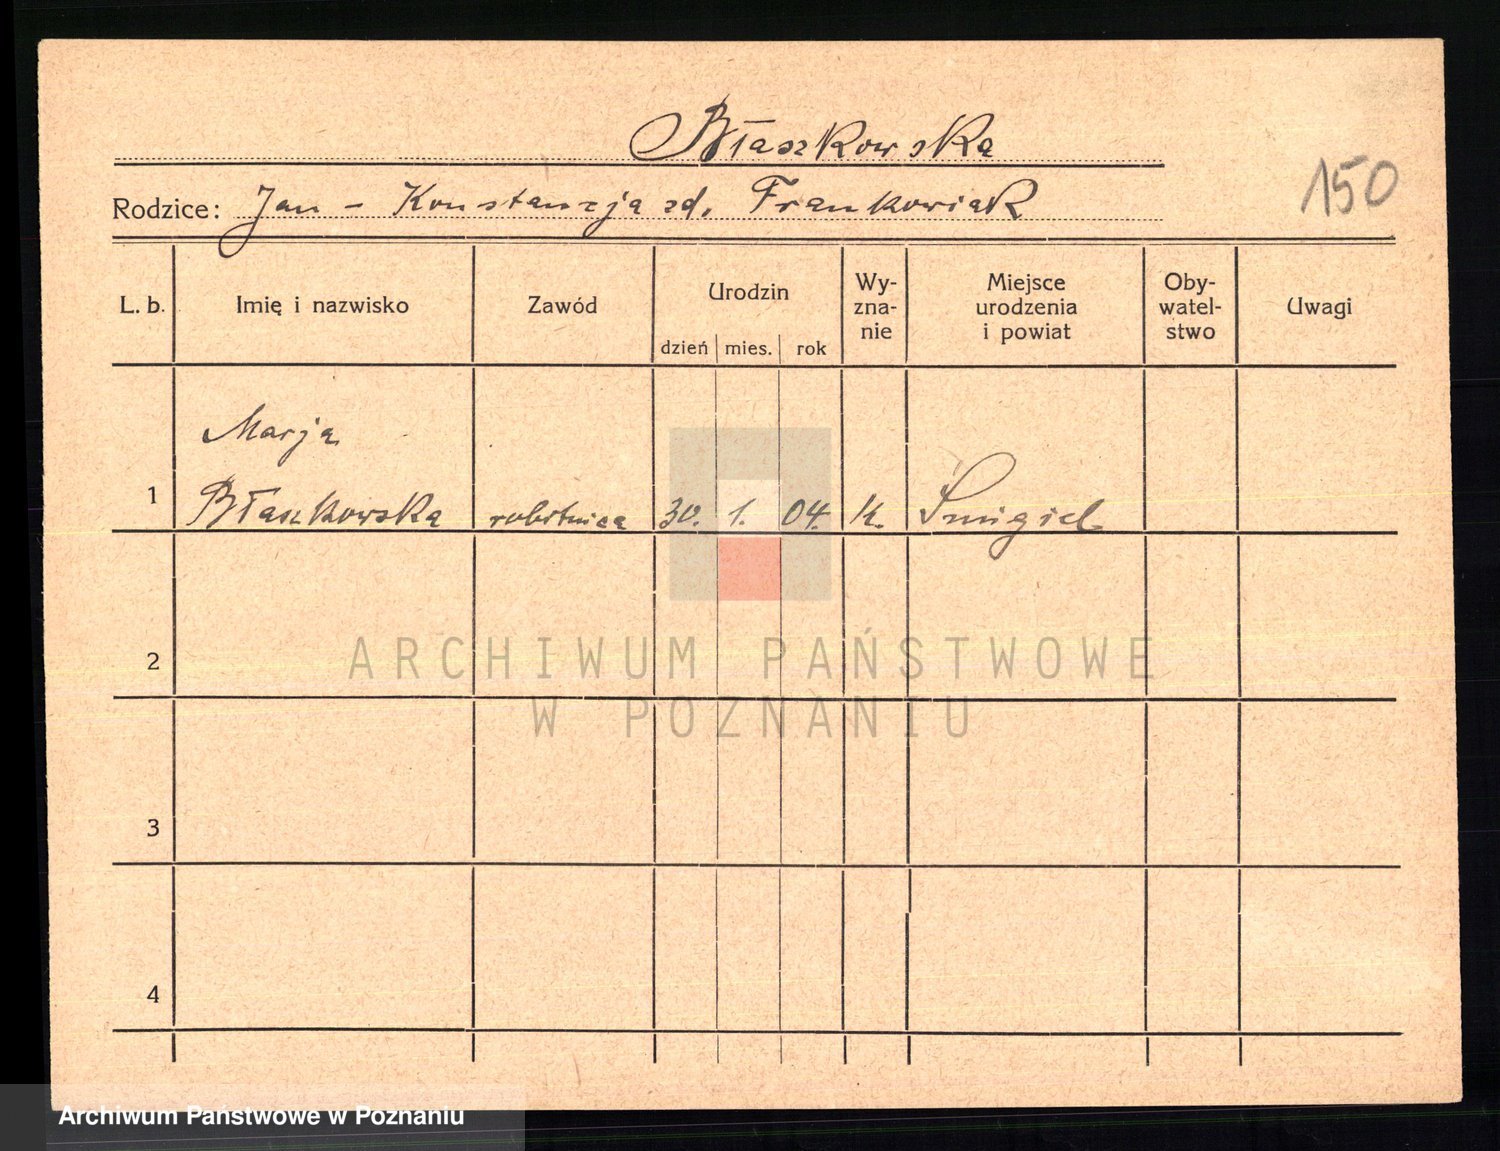 Błaszkowska
150
Rodzice: Jan - Konstancja zd. Frankowiak
L. b. Imię i nazwisko Zawód Urodzin dzień mies. rok Wy-zna-nie Miejsce urodzenia i powiat Oby-watel-stwo Uwagi
Marja
1 Błaszkowska robotnica 30. 1. 04. k. Śmigiel
2
ARCHIWUM PAŃSTWOWE
W POZNANIU
3
4
Archiwum Państwowe w Poznaniu